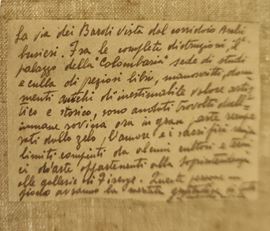 La via dei Bardi vista dal corridoio Archi
busieri. Fra le complete distruzioni, il
palazzo della Colombaria sede di studi
e culla di preziosi libri, manoscritti, docu
menti antichi di inestimabile valore artis
tico e storico, sono andati travolti dall'
immane rovina ora in gran parte recupe
rati dallo zelo, l'amore e i sacrifici senza
limiti compiuti da alcuni cultori e tecni
ci d'arte appartenenti alla sopraintendenza
alle gallerie di Firenze. Queste persone
avranno la meritata gratitudine